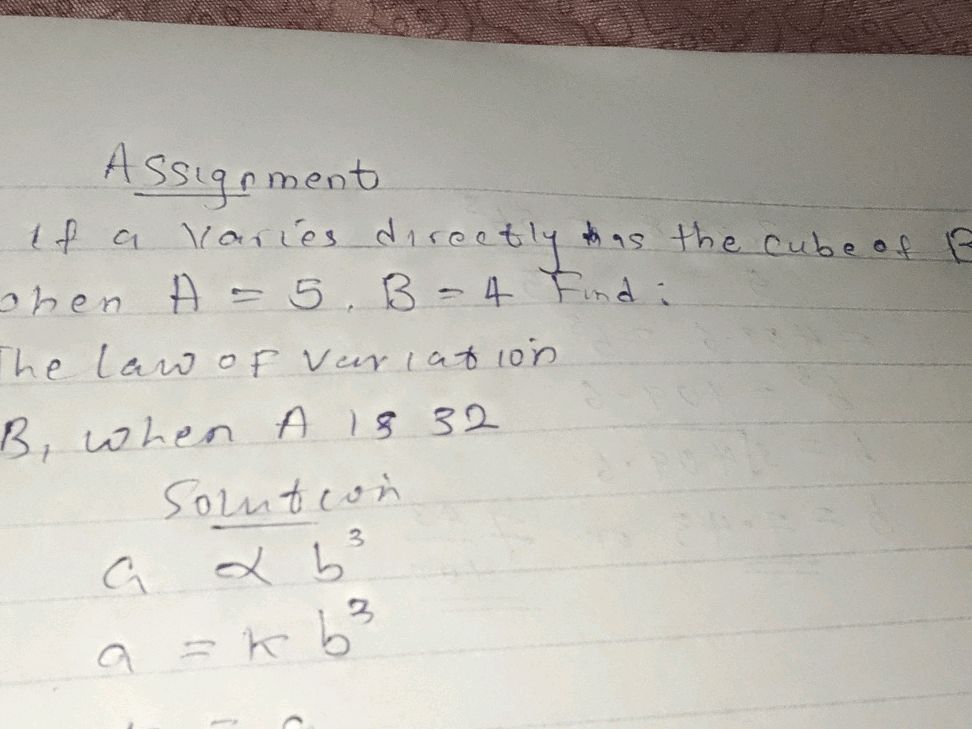 Assignment
If a varies directly has the cube of B
when A = 5, B = 4 Find:
The law of variation
B, when A is 32
Solution
a ∝ b³
a = k b³